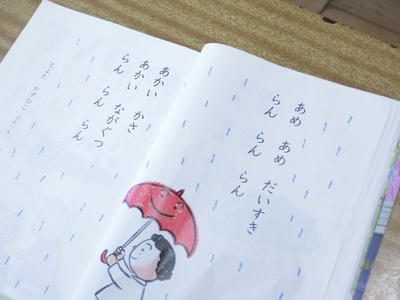 あめ あめ だいすき
らん らん らん
あかい かさ
あかい ながぐつ
らん らん らん